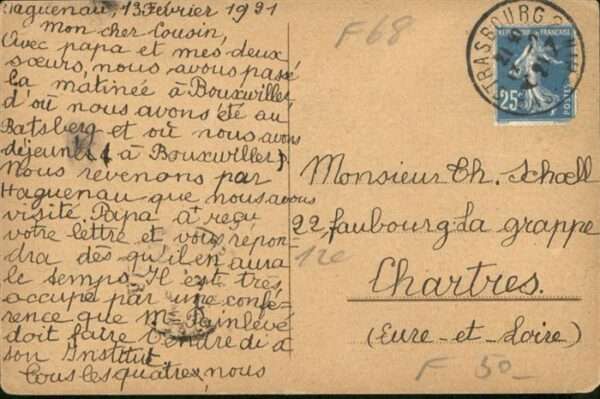 Haguenau, 13 Février 1921
Mon cher Cousin,
Avec papa et mes deux
sœurs, nous avons passé
la matinée à Bouxwiller,
d'où nous avons été au
Batsberg et où nous avons
déjeuner (à Bouxwiller)
Nous revenons par
Haguenau que nous avons
visité. Papa a reçu
votre lettre et vous répon
dra dès qu'il en aura
le temps. Il est très
occupé par une confé-
rence que Mr Painlevé
doit faire Vendredi à
son Institut.
Tous les quatre, nous
F 68
STRASBOURG
RÉPUBLIQUE FRANÇAISE
25c
POSTES
Monsieur Ch. Schoell
22, faubourg La grappe
12e
Chartres.
(Eure-et-Loire)
F 50-